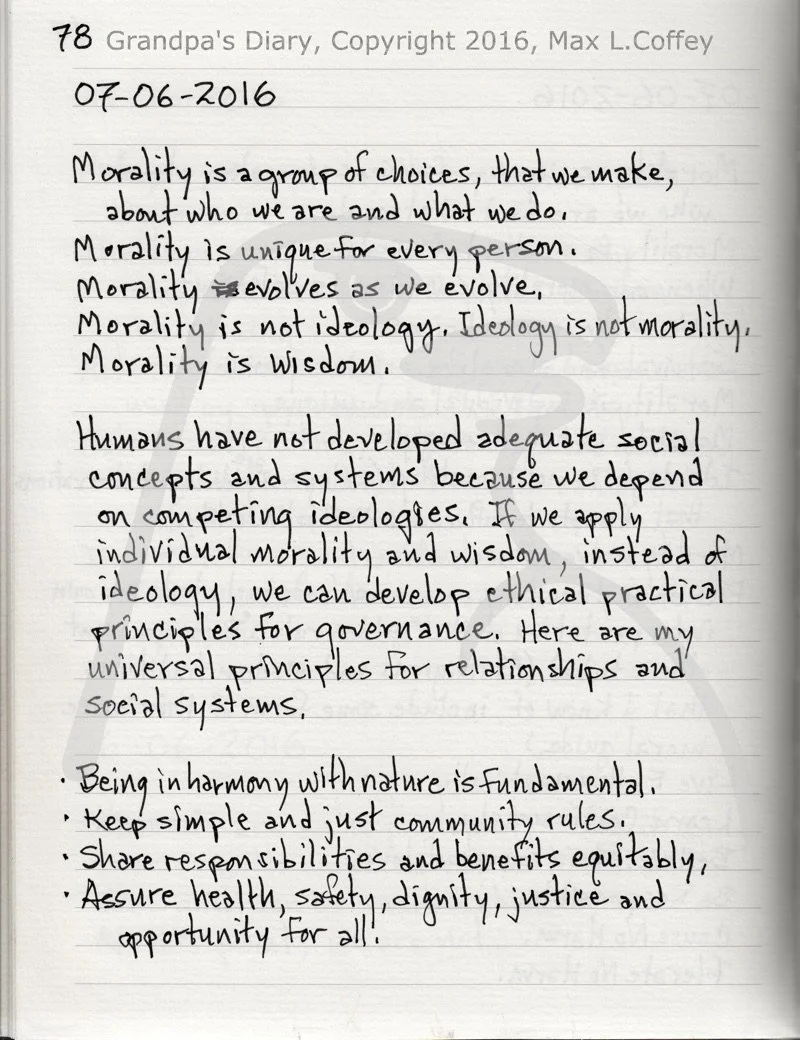 78 Grandpa's Diary, Copyright 2016, Max L.Coffey
07-06-2016
Morality is a group of choices, that we make,
about who we are and what we do.
Morality is unique for every person.
Morality evolves as we evolve.
Morality is not ideology. Ideology is not morality.
Morality is wisdom.
Humans have not developed adequate social
concepts and systems because we depend
on competing ideologies. If we apply
individual morality and wisdom, instead of
ideology, we can develop ethical practical
principles for governance. Here are my
universal principles for relationships and
social systems.
· Being in harmony with nature is fundamental.
· Keep simple and just community rules.
· Share responsibilities and benefits equitably.
· Assure health, safety, dignity, justice and
opportunity for all.